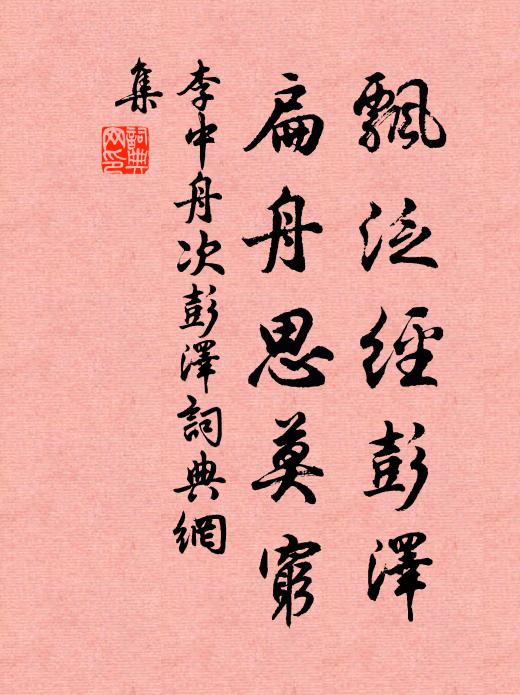 飄泛經彭澤
扁舟思莫窮
李中舟次彭澤詞典網
集
詞典网印